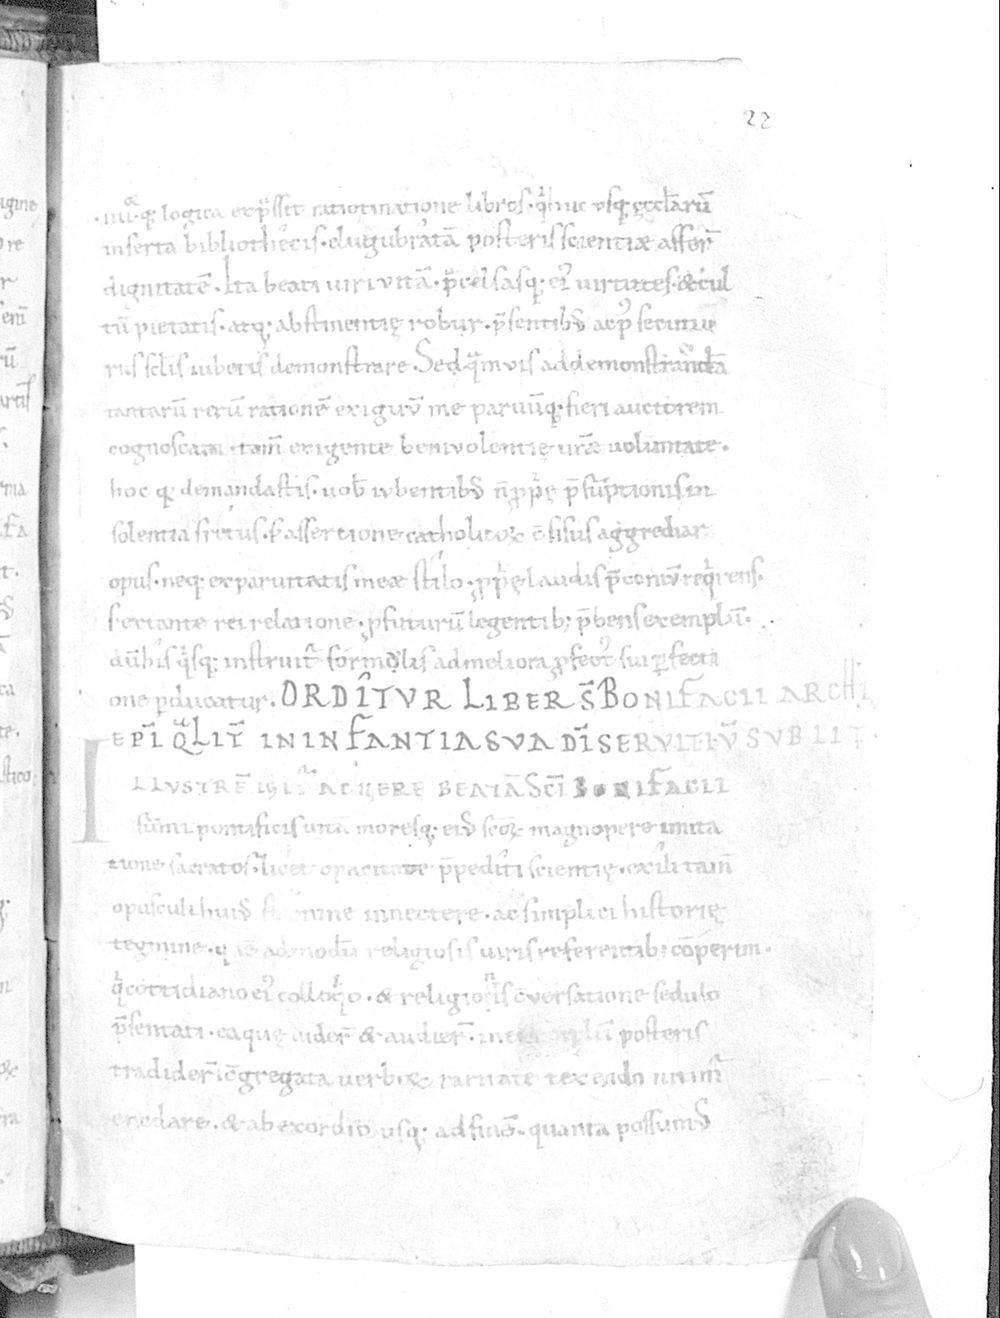 22
.IIII.or q; logica exp̄ssit ratiotinatione libros. qͥ huc usq; ęccl̄arū
inserta bibliothecis. elugubratā posteris scientiæ affer̄
dignitatē. Ita beati uiri uitā. p̄celsasq; ei᾽ uirtutes. & cul
tū pietatis. atq; abstinentię robur. p̄sentib; ac p᾽ secutu
ris sclis iuberis demonstrare. Sed qͣmuis ad demonstrandā
tantarū rerū rationē exiguū me paruūq; fieri auctorem
cognoscam. tam̄ exigente beniuolentię ur̄æ uoluntate.
hoc q; demandastis. uob̄ iubentib; n̄ ꝓpͥę p̄sūptionis in
solentia fretus. s; assertione catholicoꝝ c̄fisus aggrediar
opus. neq; ex paruitatis meæ stilo. ꝓpͥę laudis p̄coniū reqͥrens.
s; ertante rei relatione. ꝓfuturū legentib; p̄bens exemplū.
dū his qͥsq; instruit᾽ formolis ad meliora ꝓfect᾽ sui ꝑfecti
one ꝑducatur. ORDIT̄VR LIBER S̄ BONIFACII ARCHI
EPĪ QͣLIT̄ IN INFANTIA SVA DĪ SERVITIV̄ SVBIIT.
ILLVSTRĒ IGIT᾽ AC UERE BEATĀ SCĪ BONIFACII
sūmi pontificis uitā moresq; ei᾽ scoꝝ magnopere imita
tione sacratos. licet opacitate p̄pediti scientię. exili tam̄
opusculi hui᾽ stamine innectere. ac simplici historię
tegmine. q̄ ... admodū religiosis uiris referentib; cōperim᾽.
qͥ cottidiano ei᾽ colloqͥo. & religionis c̄uersatione sedulo
p̄sentati. ea quę uider̄ & audier̄. in exemplū posteris
tradider̄. c̄gregata uerboꝝ raritate texendo nitim᾽
enodare. & ab exordio usq; ad finē. quanta possum᾽